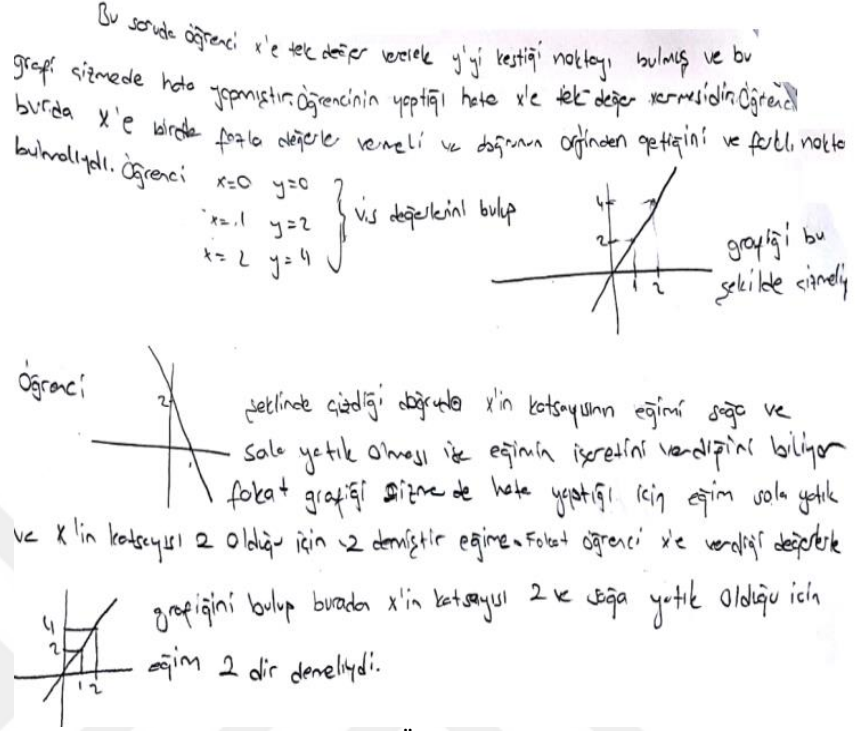 Bu soruda öğrenci x'e tek değer vererek y'yi kestiği noktayı bulmuş ve bu
grafi çizmede hata yapmıştır. Öğrencinin yaptığı hata x'e tek değer vermesidir. Öğrenci
burda x'e birden fazla değerle vermeli ve doğrunun orjinden geçtiğini ve farklı nokta
bulmalıydı. Öğrenci x=0 y=0
x=1 y=2 } v.s değerlerini bulup
x=2 y=4
4
2
1 2
grafiği bu
şekilde çizmeliy
Öğrenci
2
şeklinde çizdiği doğruda x'in katsayısının eğimi sağa ve
sola yatık olması ise eğimin işaretini verdiğini biliyor
fakat grafiği çizmede hata yaptığı için eğim sola yatık
ve x'in katsayısı 2 olduğu için -2 demiştir eğime. Fakat öğrenci x'e verdiği değerlerle
4
2
1 2
grafiğini bulup buradan x'in katsayısı 2 ve sağa yatık olduğu için
eğim 2 dir demeliydi.